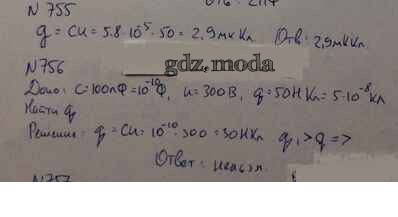 N 755
q = CU = 5.8 · 10⁻⁵ · 50 = 2,9 мкКл. Отв: 2,9 мкКл.
N756
gdz.moda
Дано: C=100пФ=10⁻¹⁰Ф, U=300В, q=50НКл=5·10⁻⁸Кл
Найти q₁
Решение: q₁=CU=10⁻¹⁰·300=30НКл q₁>q=>
Ответ: нельзя.
N757